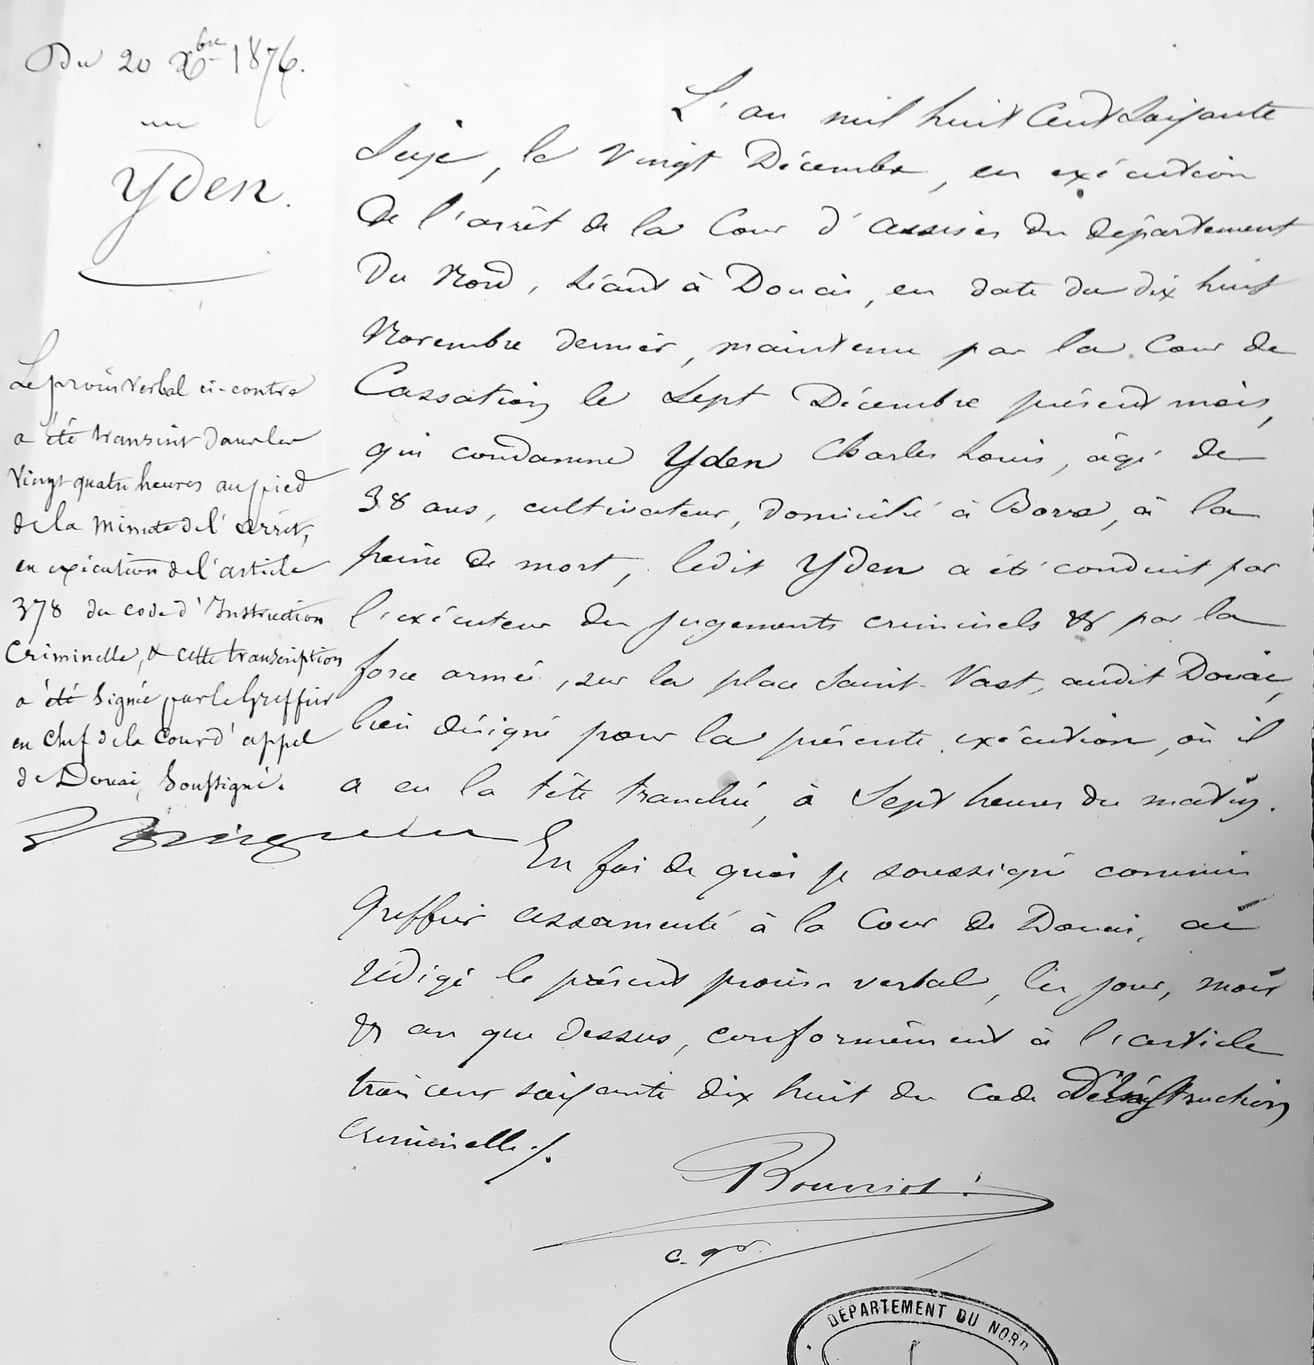 Du 20 Xbre 1876.
Yden.
Le procès verbal ci-contre
a été transcrit dans les
vingt quatre heures au pied
de la minute de l'arrêt,
en exécution de l'article
378 du code d'Instruction
Criminelle, & cette transcription
a été signée par le Greffier
en chef de la Cour d'appel
de Douai, soussigné.
L'an mil huit cent soixante
seize, le vingt Décembre, en exécution
de l'arrêt de la Cour d'assises du département
du Nord, séant à Douai, en date du dix huit
Novembre dernier, maintenu par la Cour de
Cassation le sept Décembre présent mois,
qui condamne Yden Charles Louis, âgé de
38 ans, cultivateur, domicilié à, à la
peine de mort, ledit Yden a été conduit par
l'exécuteur des jugements criminels & par la
force armée, sur la place Saint-Vast, audit Douai,
lieu désigné pour la présente exécution, où il
a eu la tête tranchée, à sept heures du matin.
En foi de quoi je soussigné commis
Greffier assermenté à la Cour de Douai, ai
rédigé le présent procès-verbal, les jour, mois
& an que dessus, conformément à l'article
trois cent soixante dix huit du Code d'Instruction
Criminelle ./.
c. gr.
DÉPARTEMENT DU NORD